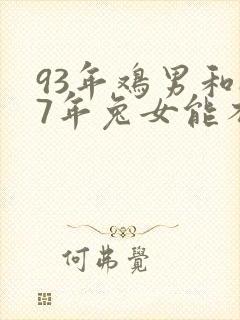 93年鸡男和
7年兔女能
何弗觉